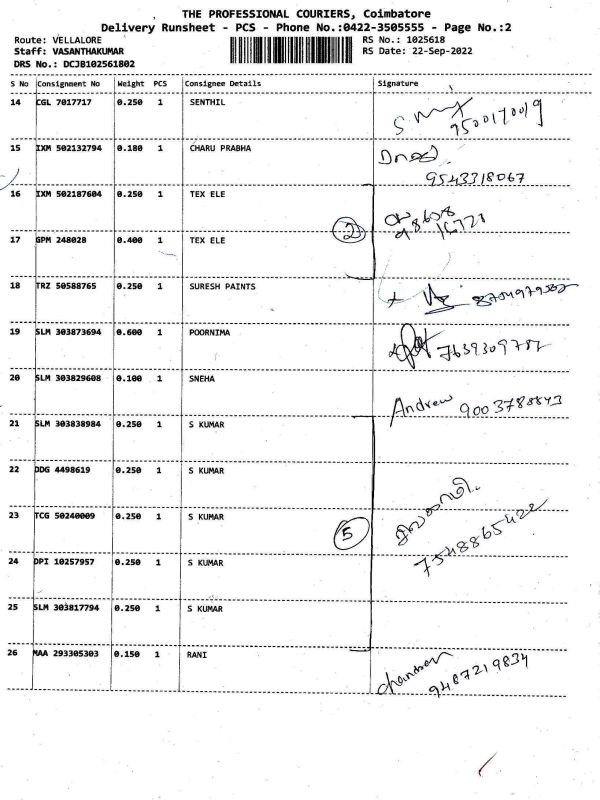 THE PROFESSIONAL COURIERS, Coimbatore
Delivery Runsheet - PCS - Phone No.:0422-3505555 - Page No.:2
Route: VELLALORE RS No.: 1025618
Staff: VASANTHAKUMAR RS Date: 22-Sep-2022
DRS No.: DCJB102561802
S No Consignment No Weight PCS Consignee Details Signature
14 CGL 7017717 0.250 1 SENTHIL
9500170019
15 IXM 502132794 0.180 1 CHARU PRABHA
9543318067
16 IXM 502187604 0.250 1 TEX ELE
2
17 GPM 248028 0.400 1 TEX ELE
18 TRZ 50588765 0.250 1 SURESH PAINTS
19 SLM 303873694 0.600 1 POORNIMA
20 SLM 303829608 0.100 1 SNEHA
Andrew 9003788843
21 SLM 303838984 0.250 1 S KUMAR
22 DDG 4498619 0.250 1 S KUMAR
23 TCG 50240009 0.250 1 S KUMAR
5
7548865422
24 DPI 10257957 0.250 1 S KUMAR
25 SLM 303817794 0.250 1 S KUMAR
26 MAA 293305303 0.150 1 RANI
9487219834